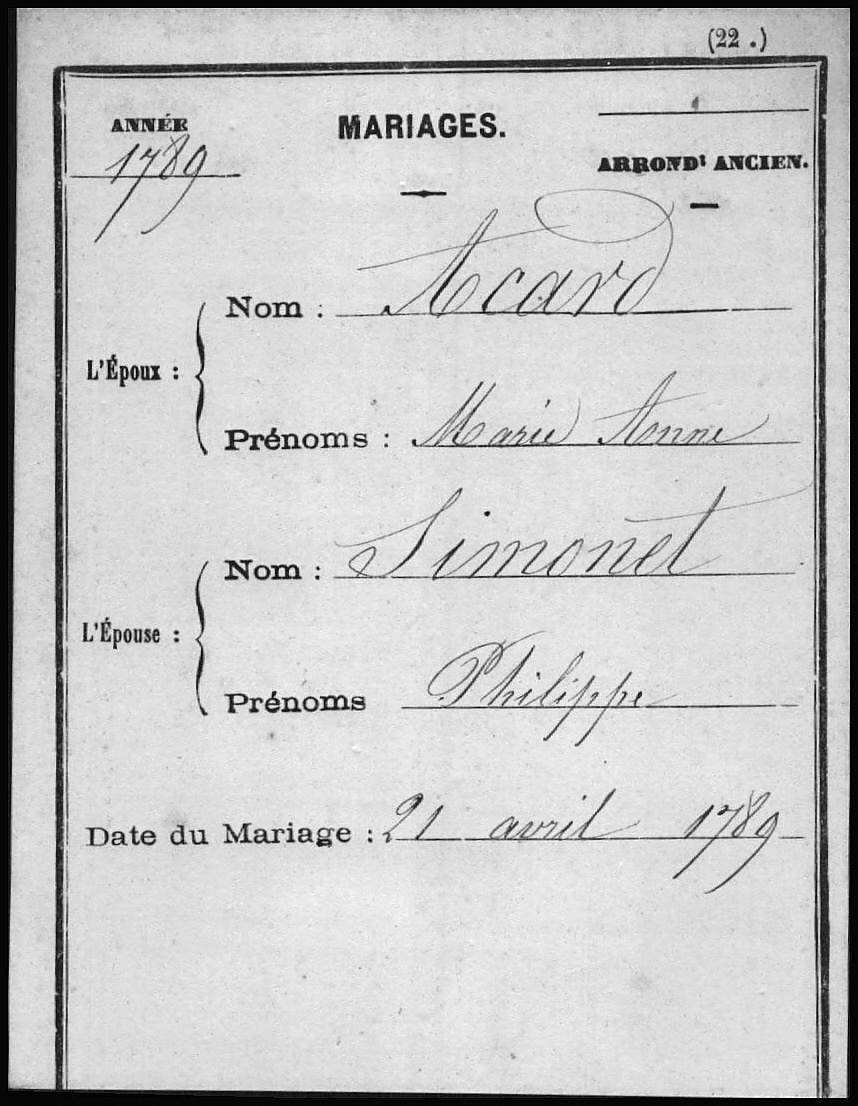 (22 .)
ANNÉE
1789
MARIAGES.
ARRONDt ANCIEN.
L'Époux :
Nom : Acard
Prénoms : Marie Anne
L'Épouse :
Nom : Simonet
Prénoms Philippe
Date du Mariage : 21 avril 1789